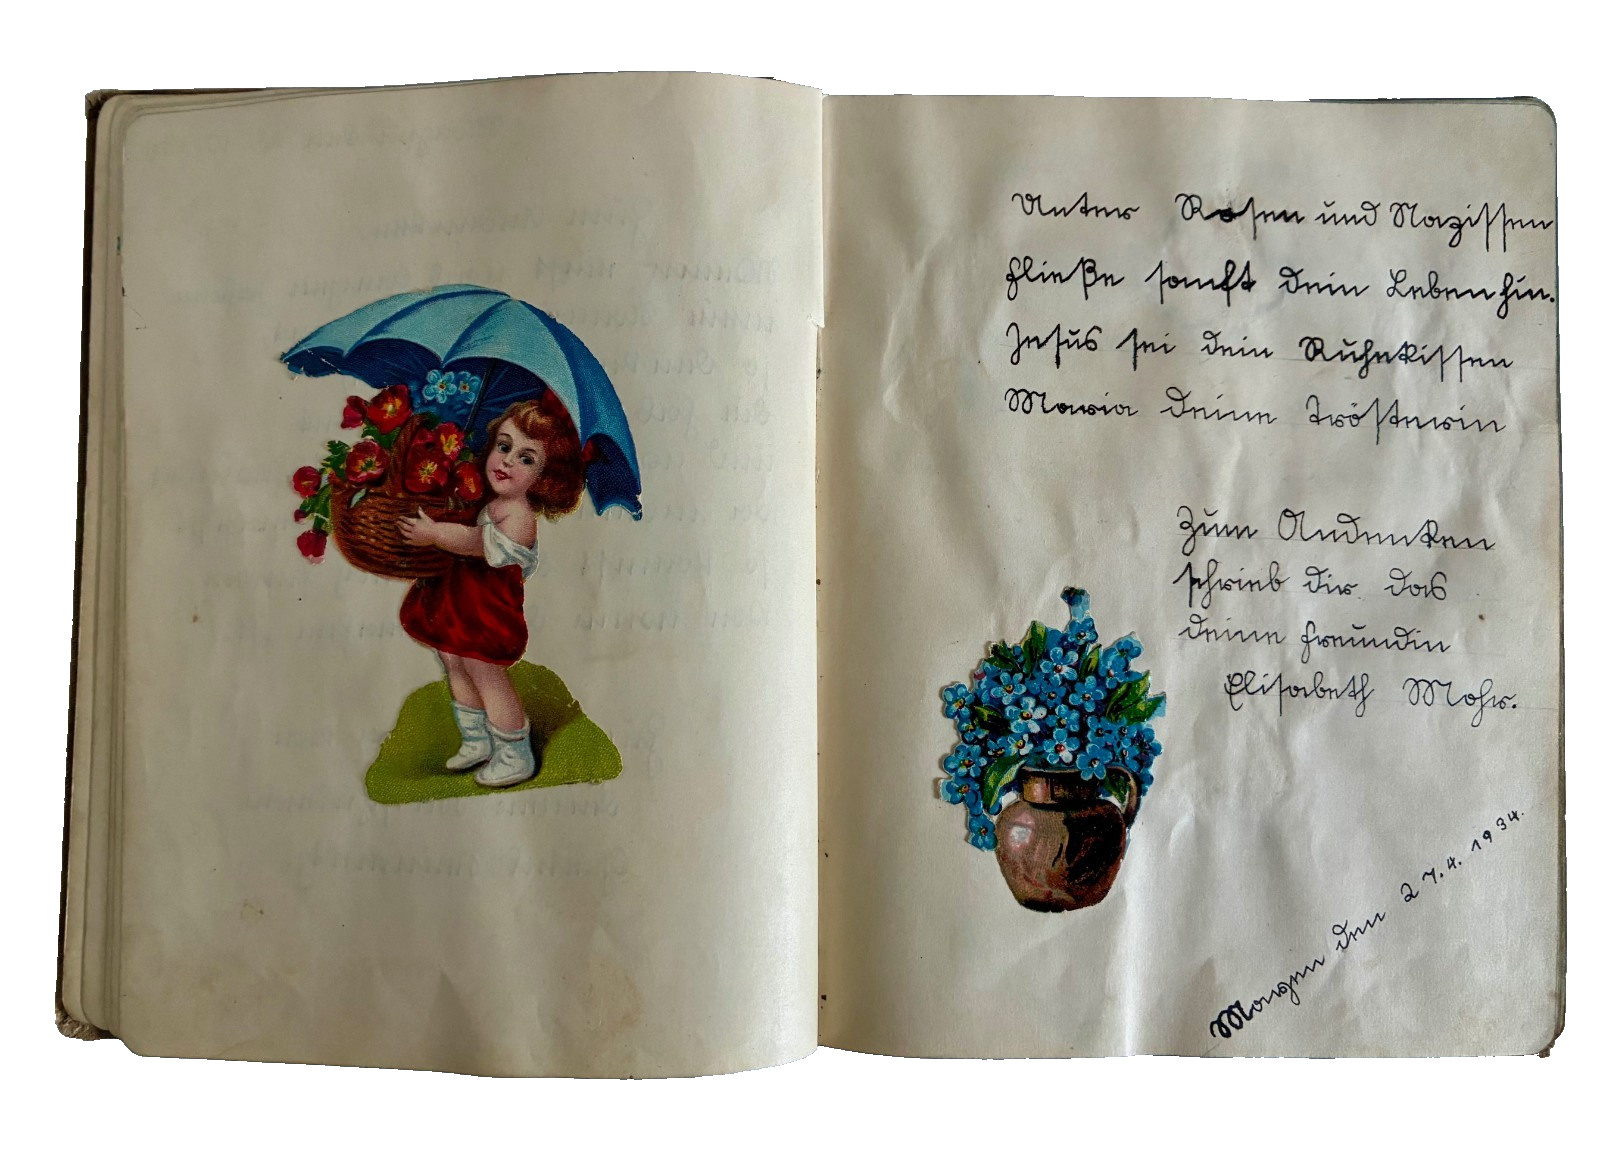 Unter Rosen und Nazissen
fließe sanft dein Leben hin.
Jesus sei dein Ruhekissen
Maria deine Trösterin
Zum Andenken
schrieb dir das
deine Freundin
Elisabeth Mohr.
Mayen den 27.4.1934.